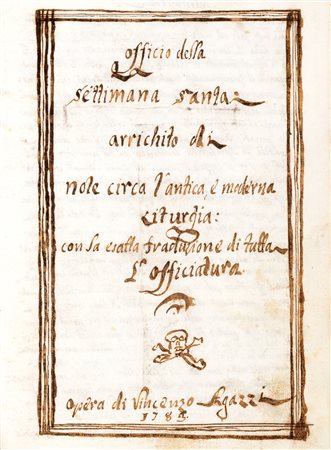 Officio della
Settimana Santa:
arrichito di
note circa l'antica, e moderna
Liturgia:
con la esatta traduzione di tutta
L'officiatura
opera di Vincenzo Agazzi
1785